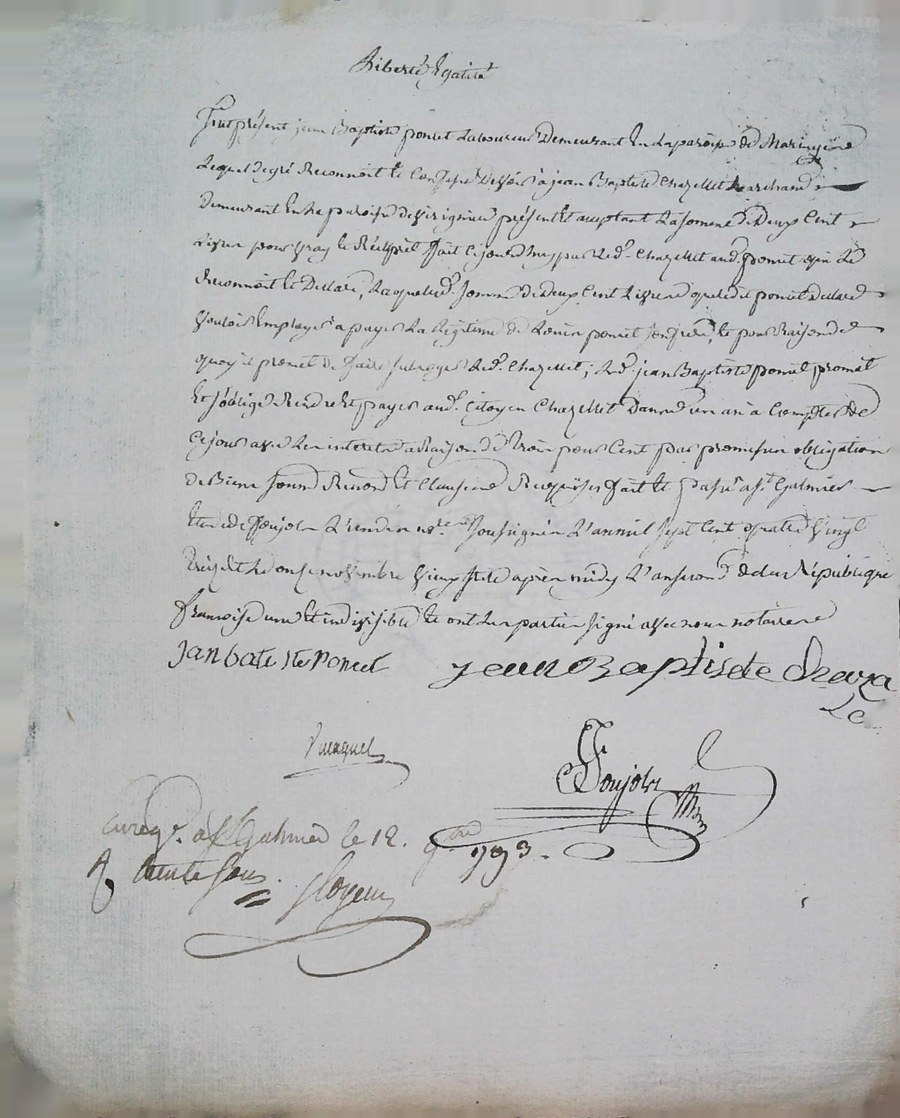 Liberté Egalité
Fut présent jean Baptiste poncet Laboureur Demeurant En la paroisse de Maringe
Lequel de gré Reconnoit et Confesse Devoir à jean Baptiste Chazellet Marchand
Demeurant En la paroisse de présent Et acceptant La somme de Deux Cent
Livres pour vray et Réel prêt fait cejourd'huy par led. Chazellet aud. poncet qui Le
Reconnoit et Declare, Laquelle d. somme de Deux Cent Livres quele dit poncet declare
vouloir Employer a payer La légitime de poncet son frère, et pour Raison de
quoy il promet de faire subroger led. Chazellet, led. jean Baptiste poncet promet
Et s'oblige Rendre Et payer aud. Citoyen Chazellet Dans un an à Compter de
Ce jour avec Les interets a Raison de trois pour Cent par promesse obligation
de Biens soumis Renon. et Clauses Requises fait et passé a St Galmier
Etude de Soujols L'un des nres Soussignés L'an mil sept Cent quatre vingt
treize et Le onze novembre vieux stile après midy L'an second de la République
francoise une et indivisible et ont Les parties signé avec nous notaires
Jan batiste Poncet jean Baptiste Chaza
Le
Soujols
enreg. a St Galmier le 12. 9bre 1793.
R trente sous.